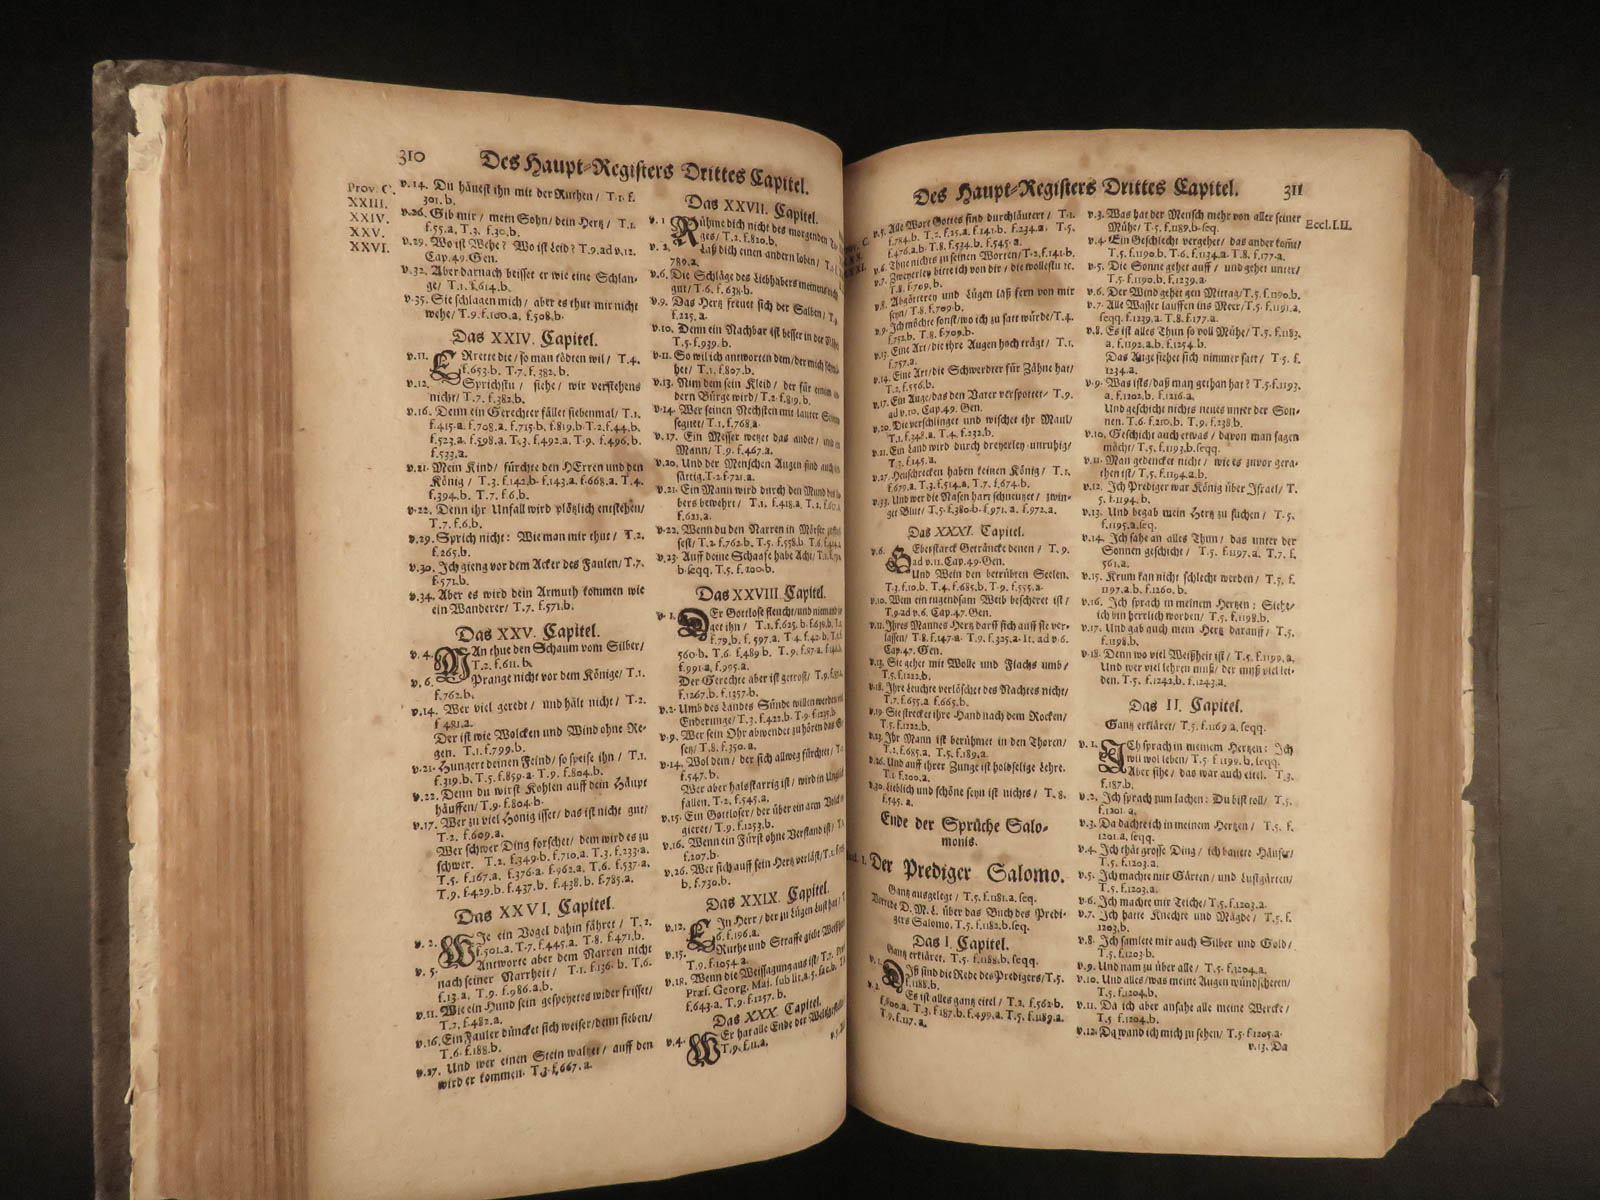 310 Des Haupt-Registers Drittes Capitel.
Prov. C.
XXIII.
XXIV.
XXV.
XXVI.
v.14. Du häuest ihn mit der Ruthen/ T.1. f.
301. b.
v.26. Gib mir/ mein Sohn/ dein Hertz/ T.1.
f.55.a, T.3. f.30.b.
v.29. Wo ist Wehe? Wo ist Leid? T.9.ad v.12.
Cap.49. Gen.
v.32. Aber darnach beisset er wie eine Schlan-
ge/ T.1. f.614.b.
v.35. Sie schlagen mich/ aber es thut mir nicht
wehe/ T.9. f.100.a, f.508.b.
Das XXIV. Capitel.
v.11. ERrette die/ so man tödten wil/ T.4.
f.653.b. T.7. f.382.b.
v.12. Sprichstu/ siehe/ wir verstehens
nicht/ T.7. f.382.b.
v.16. Denn ein Gerechter fället siebenmal/ T.1.
f.415.a. f.708.a. f.715.b. f.819.b. T.2. f.44.b.
f.523.a. f.598.a. T.3. f.492.a. T.9. f.496.b.
f.533.a.
v.21. Mein Kind/ fürchte den HErren und den
König/ T.3. f.142.b. f.143.a. f.668.a. T.4.
f.394.b. T.7. f.6.b.
v.22. Denn ihr Unfall wird plötzlich entstehen/
T.7. f.6.b.
v.29. Sprich nicht: Wie man mir thut/ T.2.
f.265.b.
v.30. Ich gieng vor dem Acker des Faulen/ T.7.
f.571.b.
v.34. Aber es wird dein Armuth kommen wie
ein Wanderer/ T.7. f.571.b.
Das XXV. Capitel.
v.4. MAn thue den Schaum vom Silber/
T.2. f.611.b.
v.6. Prange nicht vor dem Könige/ T.1.
f.762.b.
v.14. Wer viel geredt/ und hält nicht/ T.2.
f.481.a.
Der ist wie Wolcken und Wind ohne Re-
gen. T.1. f.799.b.
v.21. Hungert deinen Feind/ so speise ihn/ T.1.
f.319.b. T.5. f.859.a. T.9. f.804.b.
v.22. Denn du wirst Kohlen auff dein Häupt
häuffen/ T.9. f.804.b.
v.17. Wer zu viel Honig isset/ das ist nicht gut/
T.2. f.609.a.
Wer schwer Ding forschet/ dem wird es zu
schwer. T.2. f.349.b. f.710.a. T.3. f.233.a.
T.5. f.167.a. f.376.a. f.962.a. T.6. f.537.a.
T.9. f.429.b. f.437.b. f.438.b. f.785.a.
Das XXVI. Capitel.
v.2. WJe ein Vogel dahin fähret/ T.2.
f.501.a. T.7. f.445.a. T.8. f.471.b.
v.5. Antworte aber dem Narren nicht
nach seiner Narrheit/ T.1. f.136.b. T.6.
f.13.a. T.9. f.986.a.b.
v.11. Wie ein Hund sein gespeyetes wider frisset/
T.2. f.482.a.
v.16. Ein Fauler düncket sich weiser/ denn sieben/
T.6. f.188.b.
v.27. Und wer einen Stein waltzet/ auff den
wird er kommen. T.3. f.667.a.
Das XXVII. Capitel.
v.1 RÜhme dich nicht des morgenden
ges/ T.2. f.820.b.
v.2. Laß dich einen andern loben/
789.a.
v.6. Die Schläge des Liebhabers meinens
gut/ T.6. f.638.b.
v.9. Das Hertz freuet sich der Salben/
f.225.a.
v.10. Denn ein Nachbar ist besser in der
T.5. f.939.b.
v.11. So wil ich antworten dem/ der mich
het/ T.1. f.807.b.
v.13. Nim dem sein Kleid/ der für einen
dern Bürge wird/ T.2. f.819.b.
v.14. Wer seinen Nechsten mit lauter
segnet/ T.1. f.768.a.
v.17. Ein Messer wetzet das ander/
Mann/ T.9. f.467.a.
v.20. Und der Menschen Augen sind auch
sättig. T.2. f.721.a.
v.21. Ein Mann wird durch den Mund des
bers bewehrt/ T.1. f.418.a.
f.621.a.
v.22. Wenn du den Narren in Mörser
fest/ T.2. f.762.b. T.5. f.558.b.
v.23. Auff deine Schaafe habe Acht/
b. seqq. T.5. f.200.b.
Das XXVIII. Capitel.
v.1. DEr Gottlose fleucht/ und niemand
get ihn/ T.1. f.625.b. f.639.b.
f.79.b. f.597.a. T.4. f.42.b.
560.b. T.6. f.489.b. T.9. f.87.a.
f.991.a, f.995.a.
Der Gerechte aber ist getrost/ T.9.
f.1267.b. f.1357.b.
v.2. Umb des Landes Sünde willen werden
Enderunge/ T.3. f.422.b. T.9. f.1235.b.
v.9. Wer sein Ohr abwendet zu hören das
sez/ T.8. f.350.a.
v.14. Wol dem/ der sich allweg fürchtet/
f.547.b.
Wer aber halsstarrig ist/ wird in
fallen. T.2. f.545.a.
v.15. Ein Gottloser/ der über ein arm
gieret/ T.9. f.1253.b.
v.16. Wenn ein Fürst ohne Verstand ist/
f.207.b.
v.26. Wer sich auff sein Hertz verläst/
b. f.730.b.
Das XXIX. Capitel.
v.12. EJn Herr/ der zu Lügen Lust hat/
6. f.196.a.
v.15. Ruthe und Straffe giebt
T.9. f.1054.a.
v.18. Wenn die Weissagung aus ist/
Præf. Georg. Maj. sub lit.a.
f.643.a. T.9. f.1257.b.
Das XXX. Capitel.
v.4. WEr hat alle Ende der Welt
T.9. f.11.a.
Des Haupt-Registers Drittes Capitel. 311
Eccl.I.II.
v.5. Alle Wort Gottes sind durchläutert/ T.1.
f.784.b. T.2. f.25.a. f.141.b. f.234.a. T.5.
f.476.a.b. T.8. f.534.b. f.545.a.
v.6. Thue nichts zu seinen Worten/ T.2. f.141.b.
v.7. Zweyerley bitte ich von dir/ die wollestu ec.
T.8. f.709.b.
v.8. Abgötterey und Lügen laß fern von mir
seyn/ T.8. f.709.b.
v.9. Ich möchte sonst/ wo ich zu satt würde/ T.4.
f.752.b. T.8. f.709.b.
v.13. Eine Art/ die ihre Augen hoch trägt/ T.1.
f.757.a.
v.14. Eine Art/ die Schwerdter für Zähne hat/
T.2. f.556.b.
v.17. Ein Auge/ das den Vater verspottet/ T.9.
ad v.10. Cap.49. Gen.
v.20. Die verschlinget und wischet ihr Maul/
T.1. f.348.a. T.4. f.232.b.
v.21. Ein Land wird durch dreyerley unruhig/
T.3. f.145.a.
v.27. Heuschrecken haben keinen König/ T.1.
f.679.a. T.3. f.514.a. T.7. f.674.b.
v.33. Und wer die Nasen hart schneutzet/ zwin-
get Blut/ T.5. f.380.b. f.971.a. f.972.a.
Das XXXI. Capitel.
v.6. GEbet starck Geträncke denen/ T.9.
ad v.11. Cap.49. Gen.
Und Wein den betrübten Seelen.
T.3. f.10.b. T.4. f.685.b. T.9. f.555.a.
v.10. Wem ein tugendsam Weib bescheret ist/
T.9. ad v.6. Cap.47. Gen.
v.11. Ihres Mannes Hertz darff sich auff sie ver-
lassen/ T.8. f.147.a. T.9. f.325.a. It. ad v.6.
Cap.47. Gen.
v.13. Sie gehet mit Wolle und Flachs umb/
T.5. f.1222.b.
v.18. Ihre Leuchte verlöschet des Nachtes nicht/
T.7. f.655.a. f.665.b.
v.19. Sie strecket ihre Hand nach dem Rocken/
T.5. f.1222.b.
v.23. Ihr Mann ist berühmet in den Thoren/
T.2. f.685.a. T.5. f.189.a.
v.26. Und auff ihrer Zunge ist holdselige Lehre.
T.1. f.200.a.
v.30. Lieblich und schöne seyn ist nichts/ T.8.
f.545.a.
Ende der Sprüche Salo-
monis.
Der Prediger Salomo.
Gantz ausgelegt/ T.5. f.1181.a. seq.
Vorrede D. M. L. über das Buch des Predi-
gers Salomo. T.5. f.1182.b. seq.
Das I. Capitel.
Gantz erkläret. T.5. f.1188.b. seqq.
v.1. DIß sind die Rede des Predigers/ T.5.
f.1188.b.
v.2. Es ist alles gantz eitel/ T.2. f.562.b.
f.600.a. T.3. f.187.b. f.499.a. T.5. f.1189.a.
T.9. f.117.a.
v.3. Was hat der Mensch mehr von aller seiner
Mühe/ T.5. f.1189.b. seq.
v.4. Ein Geschlecht vergehet/ das ander kom̃t/
T.5. f.1190.b. T.6. f.1134.a. T.8. f.177.a.
v.5. Die Sonne gehet auff/ und gehet unter/
T.5. f.1190.b. f.1239.a.
v.6. Der Wind gehet gen Mittag/ T.5. f.1190.b.
v.7. Alle Wasser lauffen ins Meer/ T.5. f.1191.a.
seqq. f.1239.a. T.8. f.177.a.
v.8. Es ist alles Thun so voll Mühe/ T.5. f.1182.
a. f.1192.a.b. f.1254.b.
Das Auge siehet sich nimmer satt/ T.5. f.
1234.a.
v.9. Was ists/ daß man gethan hat? T.5. f.1193.
a. f.1202.b. f.1216.a.
Und geschicht nichts neues unter der Son-
nen. T.6. f.210.b. T.9. f.238.b.
v.10. Geschicht auch etwas/ davon man sagen
möcht/ T.5. f.1193.b. seqq.
v.11. Man gedencket nicht/ wie es zuvor gera-
then ist/ T.5. f.1194.a.b.
v.12. Ich Prediger war König über Israel/ T.
5. f.1194.b.
v.13. Und begab mein Hertz zu suchen/ T.5.
f.1195.a. seq.
v.14. Ich sahe an alles Thun/ das unter der
Sonnen geschicht/ T.5. f.1197.a. T.7. f.
561.a.
v.15. Krum kan nicht schlecht werden/ T.5. f.
1197.a.b. f.1260.b.
v.16. Ich sprach in meinem Hertzen: Siehe/
ich bin herrlich worden/ T.5. f.1198.b.
v.17. Und gab auch mein Hertz darauff/ T.5.
f.1198.b.
v.18. Denn wo viel Weißheit ist/ T.5. f.1199.a.
Und wer viel lehren muß/ der muß viel lei-
den. T.5. f.1242.b. f.1243.a.
Das II. Capitel.
Gantz erkläret/ T.5. f.1169.a. seqq.
v.1. JCh sprach in meinem Hertzen: Ich
wil wol leben/ T.5. f.1199.b. seqq.
Aber sihe/ das war auch eitel. T.3.
f.187.b.
v.2. Ich sprach zum Lachen: Du bist toll/ T.5.
f.1201.a.
v.3. Da dachte ich in meinem Hertzen/ T.5. f.
1201.a. seqq.
v.4. Ich thät grosse Ding/ ich bauete Häuser/
T.5. f.1203.a.
v.5. Ich machte mir Gärten/ und Lustgärten/
T.5. f.1203.a.
v.6. Ich machte mir Teiche/ T.5. f.1203.a.
v.7. Ich hatte Knechte und Mägde/ T.5. f.
1203.b.
v.8. Ich samlete mir auch Silber und Gold/
T.5. f.1203.b.
v.9. Und nam zu über alle/ T.5. f.1204.a.
v.10. Und alles/ was meine Augen wündscheten/
T.5. f.1204.b.
v.11. Da ich aber ansahe alle meine Wercke/
T.5. f.1204.b.
v.12. Da wand ich mich zu sehen/ T.5. f.1205.a.
v.13. Da